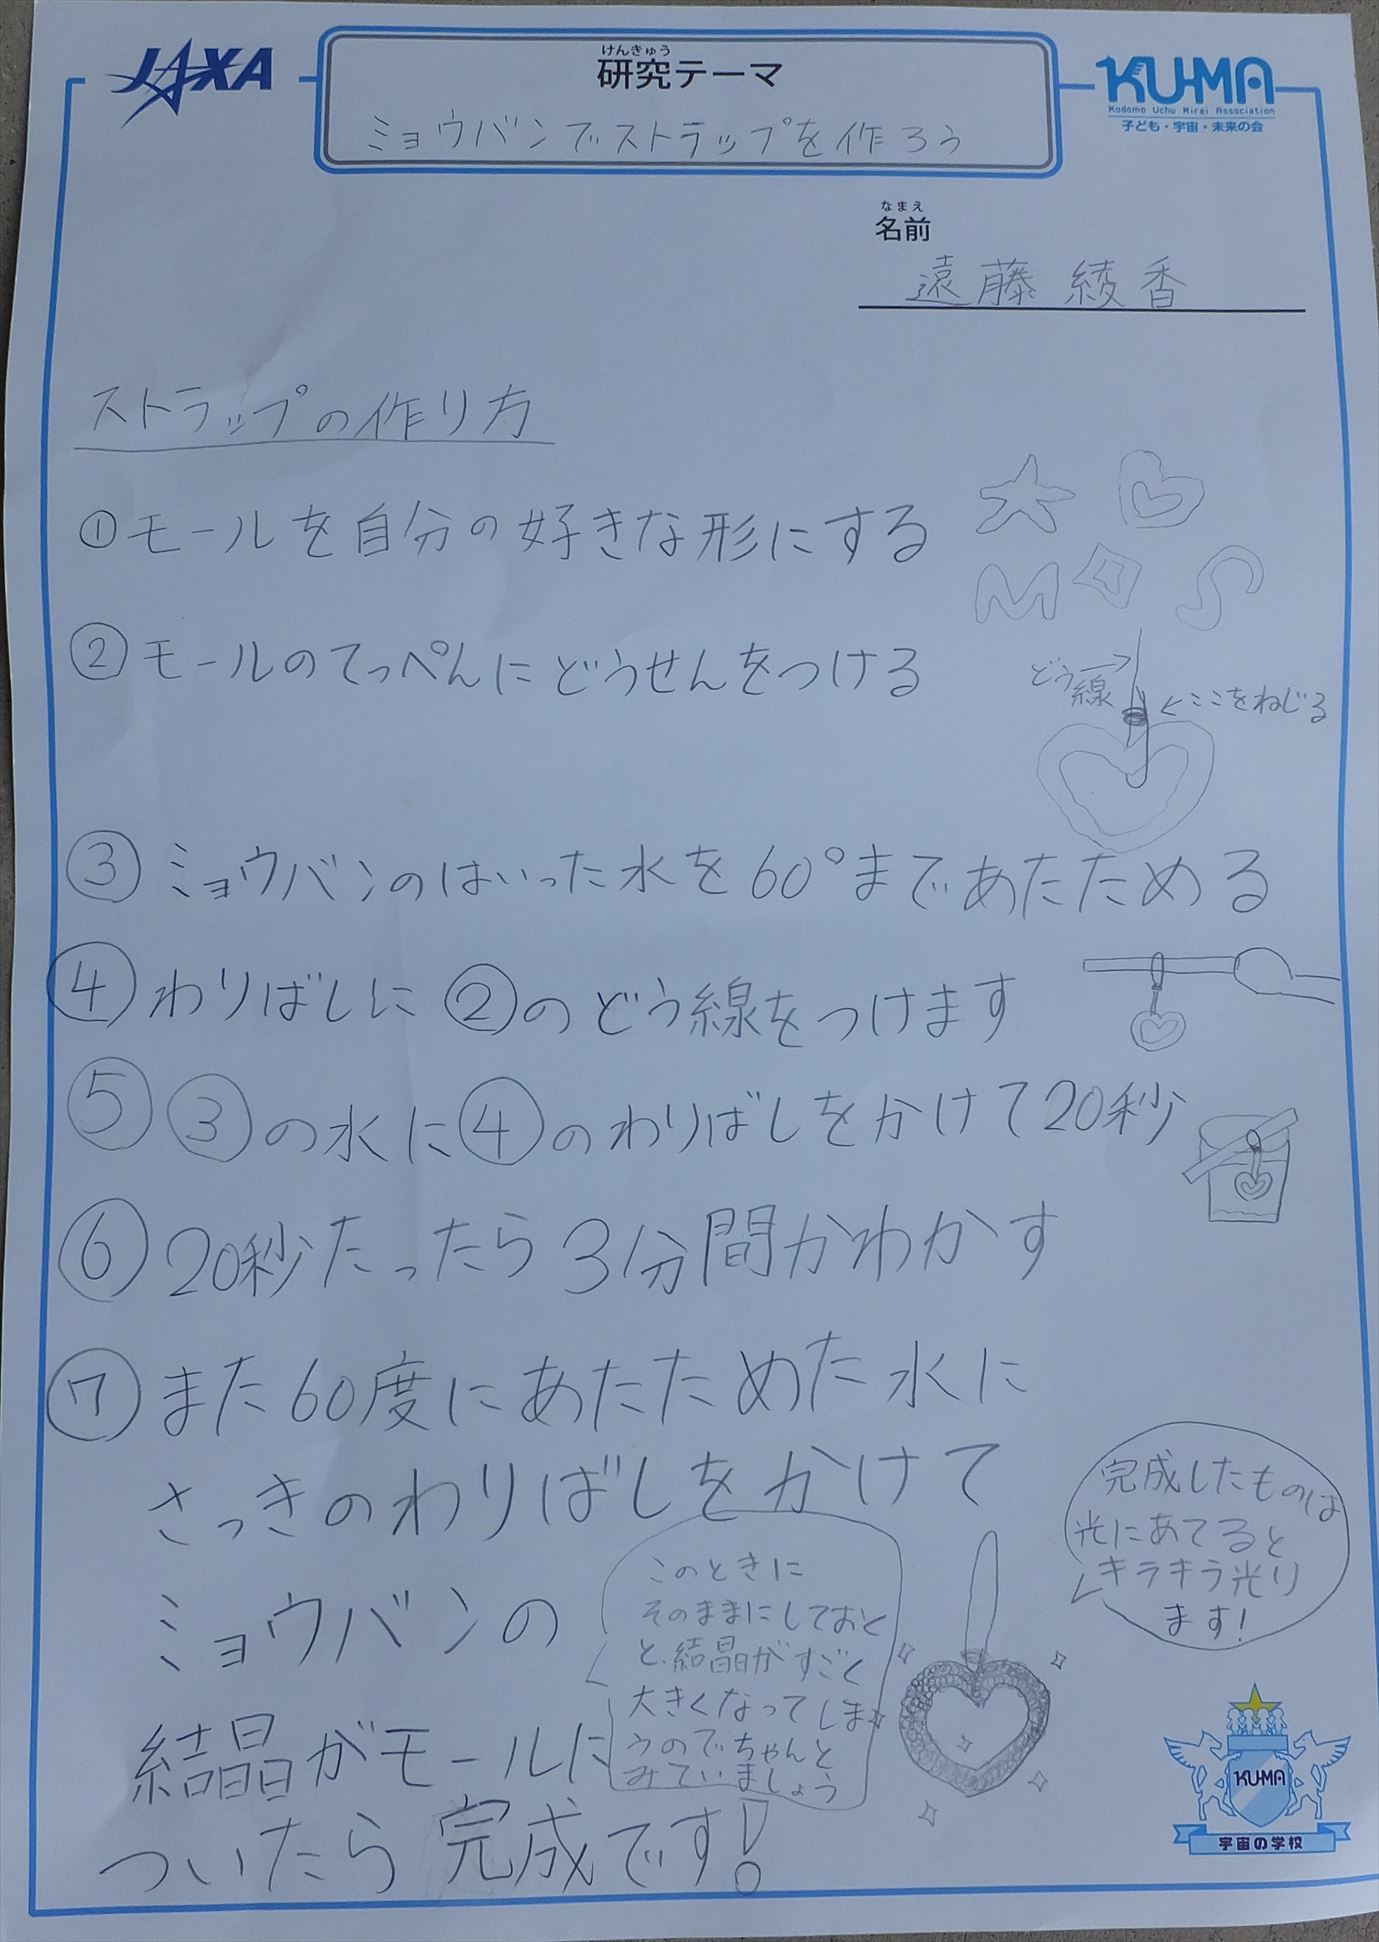 JAXA
けんきゅう
研究テーマ
ミョウバンでストラップを作ろう
KU-MA
Kodomo Uchu Mirai Association
子ども・宇宙・未来の会
なまえ
名前
遠藤 綾香
ストラップの作り方
①モールを自分の好きな形にする
M S
②モールのてっぺんにどうせんをつける
どう線
←ここをねじる
③ミョウバンのはいった水を60°まであたためる
④わりばしに②のどう線をつけます
⑤③の水に④のわりばしをかけて20秒
⑥20秒たったら3分間かわかす
⑦また60度にあたためた水に
さっきのわりばしをかけて
ミョウバンの
結晶がモールに
ついたら完成です!
このときに
そのままにしておく
と、結晶がすごく
大きくなってしま
うのでちゃんと
みていましょう
完成したものは
光にあてると
キラキラ光り
ます!
KU-MA
宇宙の学校